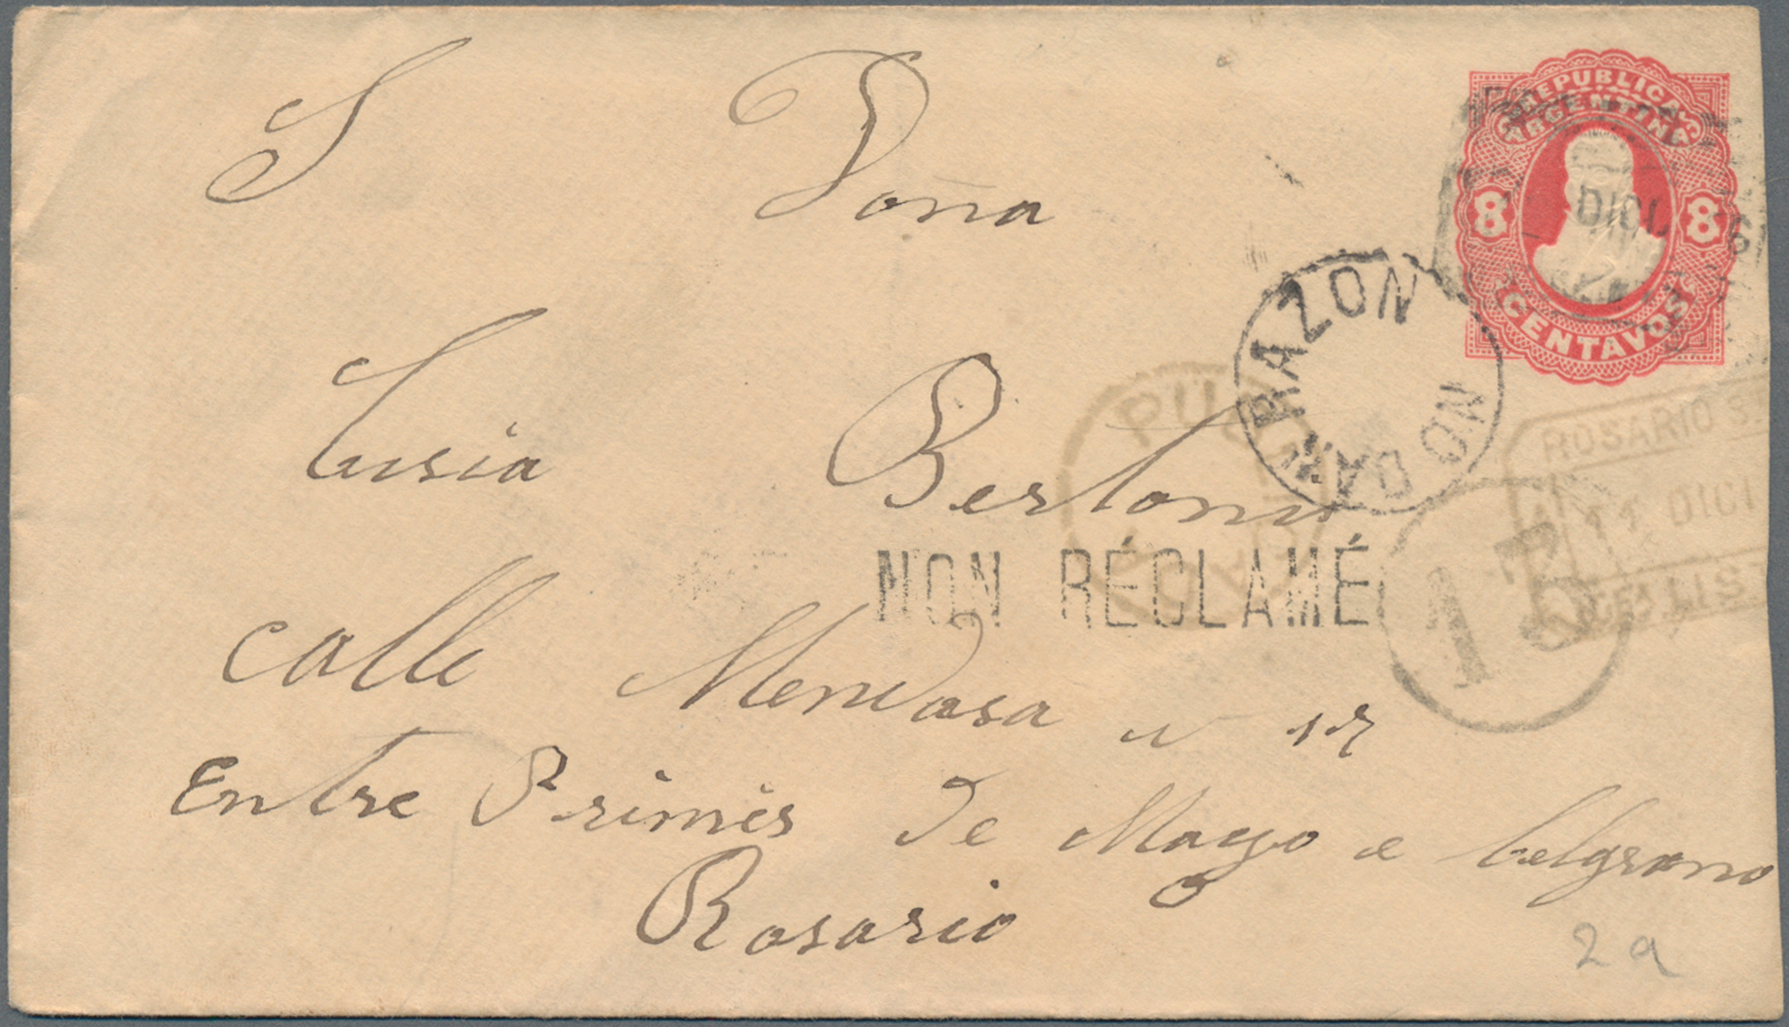 S Doña
REPUBLICA
ARGENTINA
8 8
CENTAVOS
DICI 6
Lusia Bertoni
NO DAN RAZON
ROSARIO S.
11 DICI
LIST
NON RÉCLAMÉ
13
calle Mendosa n 17
Entre Primes de Mayo e belgrano
Rosario
2a